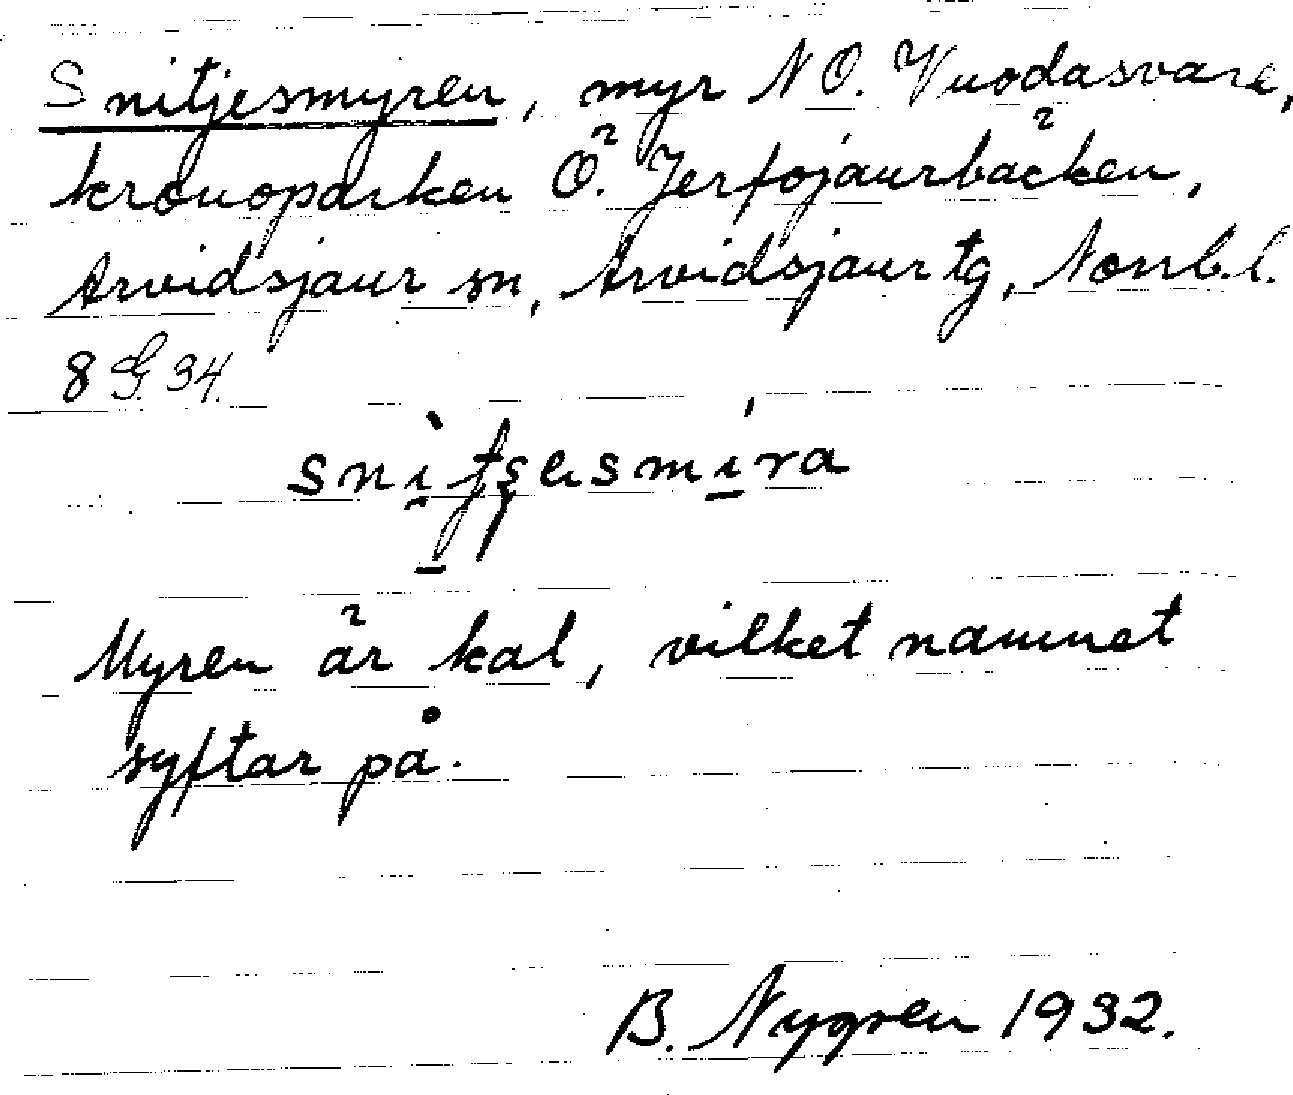 Snitjesmyren, myr NO. Vuodasvare,
kronoparken Ö. Jerfojaurbäcken,
Arvidsjaur sn, Arvidsjaur tg, Norrb.l.
8 G 34.
Myren är kal, vilket namnet
syftar på.
B. Nygren 1932.